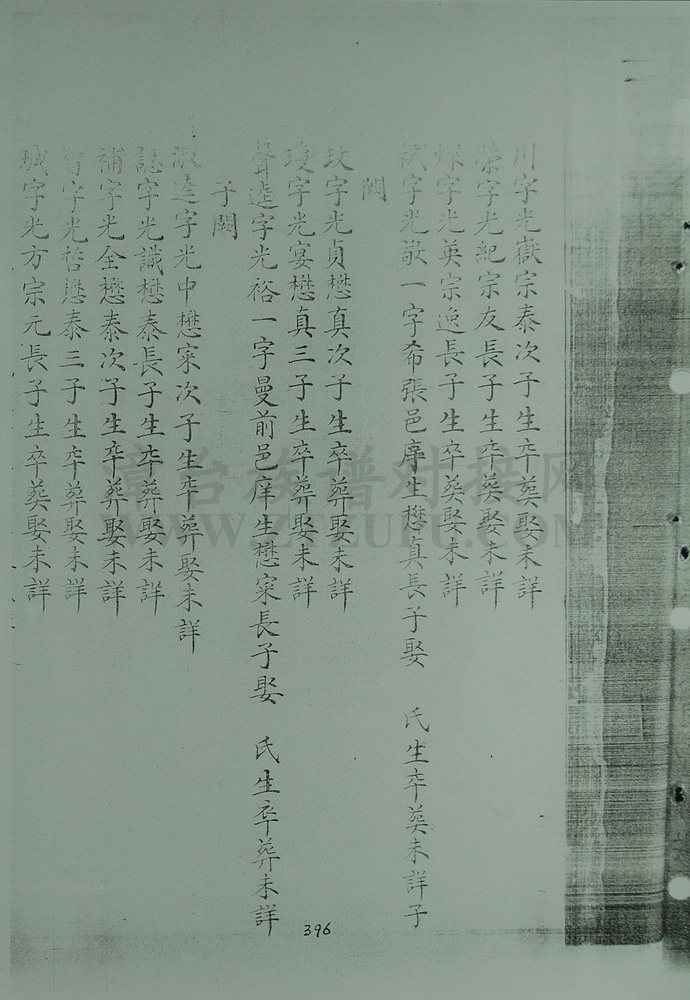 川字光嶽宗泰次子生卒葬娶未詳
榮字光紀宗友長子生卒葬娶未詳
燦字光英宗逸長子生卒葬娶未詳
栻字光敬一字希張邑庠生懋真長子娶 氏生卒葬未詳子
闕
玟字光貞懋真次子生卒葬娶未詳
瓊字光宴懋真三子生卒葬娶未詳
聲逵字光裕一字曼前邑庠生懋寀長子娶 氏生卒葬未詳
子闕
淑逵字光中懋寀次子生卒葬娶未詳
誌字光識懋泰長子生卒葬娶未詳
補字光全懋泰次子生卒葬娶未詳
智字光哲懋泰三子生卒葬娶未詳
珹字光方宗元長子生卒葬娶未詳
396
章台族譜對接网
WWW.ZTZUPU.COM